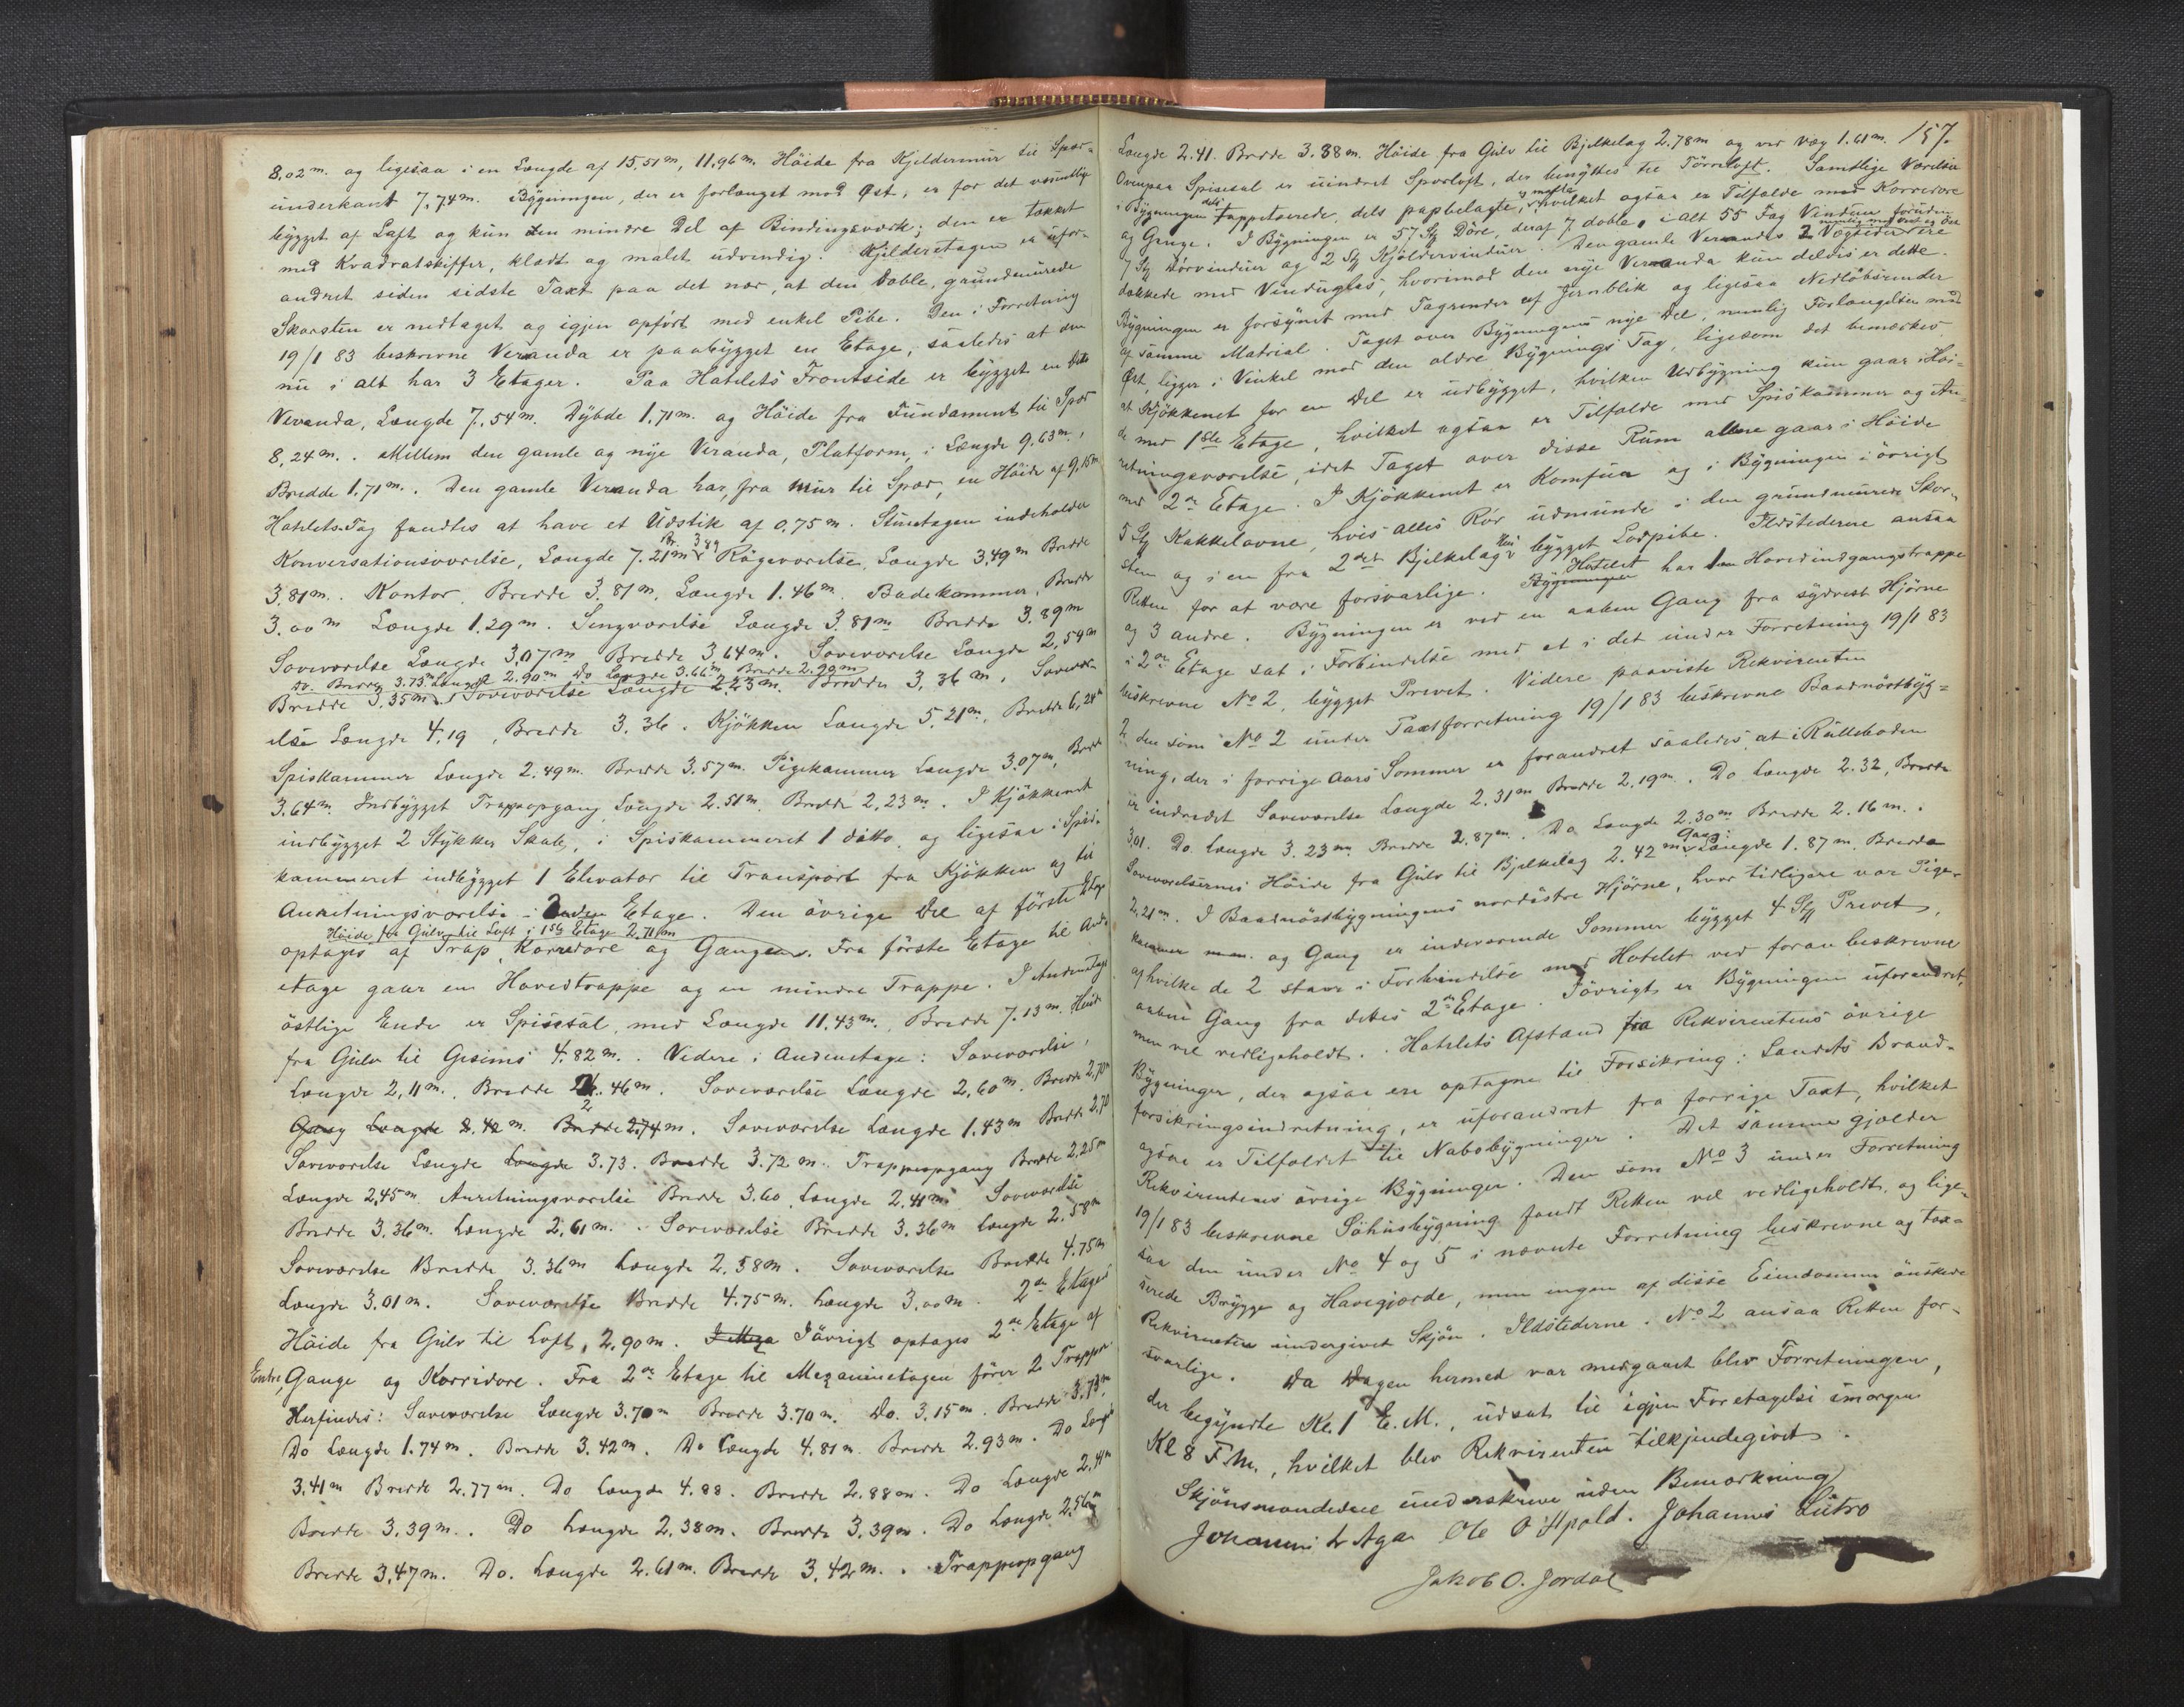 8,02 m. og ligesaa i en Længde af 15,51 m, 11,96 m. Höide fra Kjeldermur til Spær-
underkant 7,74 m. Bygningen, der er forlænget mod Øst, er for det væsentlige
bygget af Laft og kun den mindre Del af Bindingsværk; den er tækket
med Kvadratskiffer, klædt og malet udvendig. Kjelderetagen er ufor-
andret siden sidste Taxt paa det nær, at den doble, grundmurede
Skorsten er nedtaget og igjen opfört med enkel Pibe. Den i Forretning
19/1 83 beskrevne Veranda er paabygget en Etage, saaledes at den
nu i alt har 3 Etager. Paa Hotellets Frontside er bygget en
Veranda, Længde 7,54 m. Dybde 1,71 m. og Höide fra Fundament til Spær
8,24 m. Mellem den gamle og nye Veranda, Platform, i Længde 9.63 m.,
Bredde 1,71 m. Den gamle Veranda har, fra Mur til Spær, en Höide af 9,15 m
Hotellets Tag fandtes at have et Udstik af 0,75 m. Stuetagen indeholder
Br. 3 89
Konversationsværelse, Længde 7.21 m Rögeværelse, Længde 3,49 m Bredde
3,81 m. Kontor, Bredde 3.81 m, Længde 1.46 m. Badekammer, Bredde
3.00 m Længde 1.29 m. Sengværelse Længde 3.81 m Bredde 3.89 m
Soveværelse Længde 3,07 m Bredde 3 64 m. Soveværelse Længde 2,54 m
Do. Bredde 3.73 m Længde 2.90 m Do Længde 3.66 m Bredde 2.90 m
Bredde 3,35 m. Soveværelse Længde 2,23 m. Bredde 3,36 m. Soveværel-
else Længde 4,19, Bredde 3.36. Kjökken Længde 5,21 m, Bredde 6,24 m
Spiskammer Længde 2.49 m. Bredde 3,57 m. Pigekammer Længde 3,07 m, Bredde
3,64 m. Indbygget Trappeopgang Længde 2.51 m. Bredde 2,23 m. I Kjökkenet
indbygget 2 Stykker Skabe, i Spiskammeret 1 ditto, og ligesaa i Spis-
kammeret indbygget 1 Elevator til Transport fra Kjökken og til
Anretningsværelse i Anden Etage. Den övrige Del af förste Etage
Höide fra Gulv til Loft i 1ste Etage 2,71 m
optages af Trap, Korridore og Gangen. Fra förste Etage til Anden
etage gaar en Hovedtrappe og en mindre Trappe. I Andenetages
östlige Ende er Spisesal, med Længde 11.43 m., Bredde 7.13 m. Höide
fra Gulv til Gesims 4.82 m. Videre i Andenetage: Soveværelse,
Længde 2,11 m. Bredde 2.46 m. Soveværelse Længde 2,60 m. Bredde 2,70 m
Gang Længde 2.42 m. Bredde 2.74 m. Soveværelse Længde 1.43 m Bredde 2,70
Soveværelse Længde Længde 3.73. Bredde 3.72 m. Trappeopgang Bredde 2,25 m
Længde 2,45 m. Anretningsværelse Bredde 3.60 Længde 2,41 m. Soveværelse
Bredde 3.36 m. Længde 2,61 m. Soveværelse Bredde 3.36 m Længde 2.58 m
Soveværelse Bredde 3.36 m Længde 2.58 m. Soveværelse Bredde 4.75 m
Længde 3.01 m. Soveværelse Bredde 4.75 m. Længde 3,00 m. 2den Etages
Höide fra Gulv til Loft, 2,90 m. I Meza Iövrigt optages 2den Etage af
Entre, Gange og Korridore. Fra 2den Etage til Mezaninetagen förer 2 Trapper
Herfindes: Soveværelse Længde 3.70 m Bredde 3.70 m. Do. 3,15 m. Bredde 3.73 m
Do Længde 1.74 m. Bredde 3.42 m. Do Længde 4.81 m. Bredde 2.93 m. Do Længde
3.41 m Bredde 2.77 m. Do Længde 4.88. Bredde 2.88 m. Do Længde 2,41 m
Bredde 3.39 m. Do Længde 2,38 m. Bredde 3.39 m. Do Længde 2.56 m
Bredde 3,47 m. Do. Længde 2.61 m. Bredde 3,42 m. Trappeopgang
157.
Længde 2.41. Bredde 3.38 m. Höide fra Gulv til Bjelkelag 2.78 m og ved Væg 1.61 m.
Ovenpaa Spisesal er uindret Sperloft, der benyttes til Törreloft. Samtlige Værelser
i Bygningen dels tappetserede, dels papbelagte, hvilket ogsaa er Tilfælde med Korridore
og Gange. I Bygningen er 57 Stk Döre, deraf 7 doble, i alt 55 Fag Vinduer foruden
7 Stk Dörvinduer og 2 Stk Kjældervinduer. Den gamle Verandas 2 Vægsider ere
dækkede med Vinduglas, hvorimod den nye Veranda kun deldis er dette.
Bygningen er forsynet med Tagrender af Jernblik og ligesaa Nedlöbsrender
af samme Matrial. Taget over Bygningens nye Del, nemlig Forlængelsen mod
Øst, ligger i Vinkel mod den ældre Bygnings Tag, ligesom det bemærkes
at Kjökkenet for en Del er udbygget, hvilken Udbygning kun gaar i Höi-
de med 1ste Etage, hvilket ogsaa er Tilfælde med Spiskammer og An-
retningsværelse, idet Taget over disse Rum allene gaar i Höide
med 2den Etage. I Kjökkenet er Komfur og i Bygningen iövrigt
5 Stk Kakkelovne, hvis alles Rör udmunde i den grundmurede Skor-
sten og i en fra 2det Bjelkelag bygget Lodpibe. Ildstederne ansaa
Retten for at være forsvarlige. Bygningen Hotellet har 1 en Hovedindgangstrappe
og 3 andre. Bygningen er ved en aaben Gang fra sydvest Hjörne
i 2den Etage sat i Forbindelse med et i det under Forretning 19/1 83
beskrevne No 2, bygget Prevet. Videre paaviste Rekvirenten
2, den som No 2 under Taxtforretning 19/1 83 beskrevne Baadnöstbyg-
ning, der i forrige Aars Sommer er forandret saaledes, at i Rulleboden
er indredet Soveværelse Længde 2.31 m Bredde 2.19 m. Do Længde 2.32, Bredde
3,01. Do. Længde 3.23 m Bredde 2.87 m. Do Længde 2.30 m Bredde 2.16 m.
Gang:
Soveværelsernes Höide fra Gulv til Bjelkelag 2.42 m. Længde 1.87 m. Bredde
2,21 m. I Baadnöstbygningens nordöstre Hjörne, hvor tidligere var Pige-
kammer og Gang er indeværende Sommer bygget 4 Stk Prevet,
af hvilke de 2 staar i Forbindelse med Hotelet ved foran beskrevne
aabne Gang fra dettes 2den Etage. Iövrigt er Bygningen uforandret,
men vel vedligeholdt. Hotellets Afstand fra Rekvirentens övrige
Bygninger, der ogsaa ere optagne til Forsikring i Landets Brand-
forsikringsindretning, er uforandret fra forrige Taxt, hvilket
ogsaa er Tilfældet til Nabobygninger. Det samme gjælder
Rekvirentens övrige Bygninger. Den som No 3 under Forretning
19/1 83 beskrevne Söhusbygning fandt Retten vel vedligeholdt, og lige-
saa den under No 4 og 5 i nævnte Forretning beskrevne og tax-
erede Brygge og Havegjærde, men ingen af disse Eiendomme önskede
Rekvirenten undergivet Skjön. Ildstederne i No 2 ansaa Retten for-
svarlige. Da Dagen hermed var medgaaet blev Forretningen,
der begyndte Kl. 1 E.M., udsat til igjen Foretagelse imorgen
Kl 8 F.m., hvilket blev Rekvirenten tilkjendegivet.
Skjönsmændene underskrive uden Bemærkning
Johannes L Aga Ole O Opdal. Johannes Lutro
Jakob O. Jordal